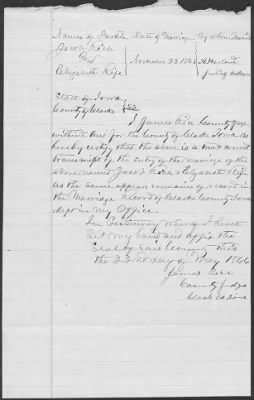 Names of Parties Date of Marriage By whom
Jacob
and November 23 186
Elizabeth Rife
State of Iowa
County of Clarke SS
I James Rice County Judge
within and for the County of Clarke Iowa do
hereby certify that the above is a true and correct
transcript of the entry of the marriage of the
above named Jacob and Elizabeth Rife
as the same appears remains of record in
the Marriage Record of Clarke County Iowa
kept in my Office.
In testimony whereof I here
set my hand and affix the
Seal of said County this
the 23rd day of May 1866
James Rice
County Judge
Clark Co Iowa